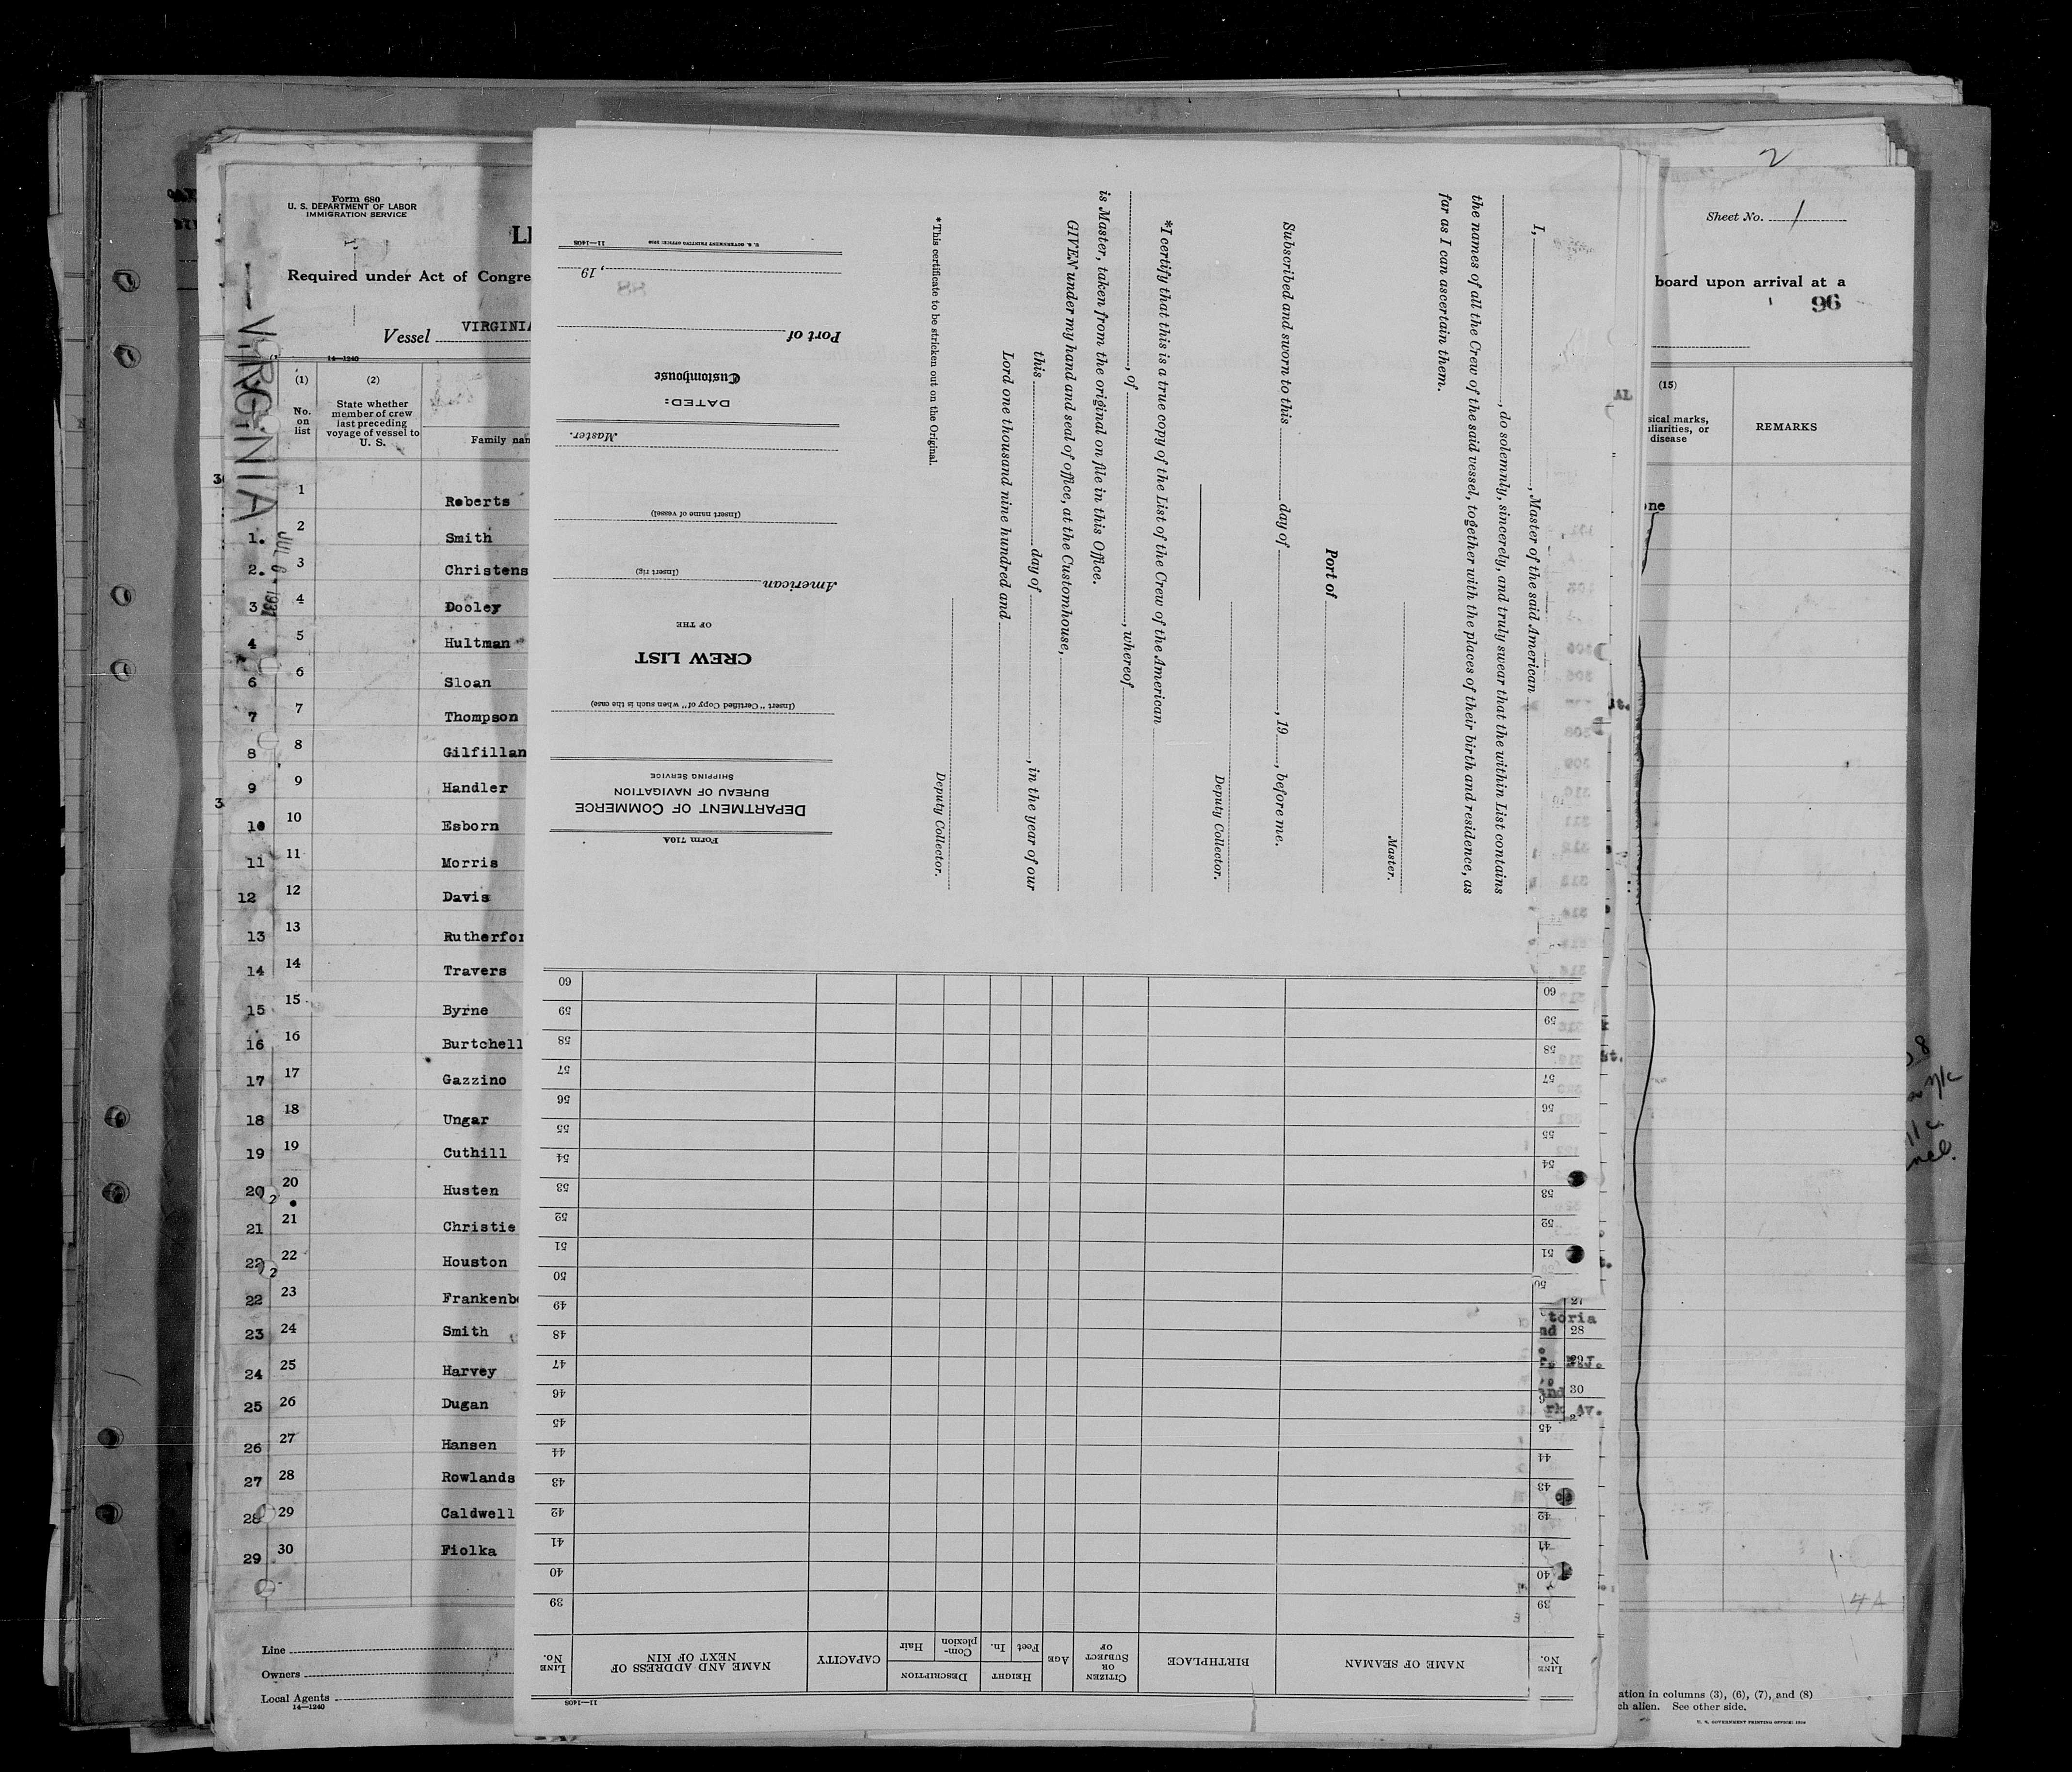 2
Form 680
U. S. DEPARTMENT OF LABOR
IMMIGRATION SERVICE
Sheet No. 1
Required under Act of Congre
board upon arrival at a
96
Vessel VIRGINIA
14—1240
VIRGINIA
JUL 6 - 1931
(1)
No.
on
list
(2)
State whether
member of crew
last preceding
voyage of vessel to
U. S.
Family nam
(15)
sical marks,
uliarities, or
disease
REMARKS
1 Roberts
1. 2 Smith
2. 3 Christens
3 4 Dooley
4 5 Hultman
6 6 Sloan
7 7 Thompson
8 8 Gilfillan
9 9 Handler
10 10 Esborn
11 11 Morris
12 12 Davis
13 13 Rutherfor
14 14 Travers
15 15 Byrne
16 16 Burtchell
17 17 Gazzino
18 18 Ungar
19 19 Cuthill
20 20 Husten
21 21 Christie
22 22 Houston
22 23 Frankenbe
23 24 Smith
24 25 Harvey
25 26 Dugan
26 27 Hansen
27 28 Rowlands
28 29 Caldwell
29 30 Fiolka
Line
Owners
Local Agents
14—1240
I, , Master of the said American
, do solemnly, sincerely, and truly swear that the within List contains
the names of all the Crew of the said vessel, together with the places of their birth and residence, as
far as I can ascertain them.
Master.
Port of
Subscribed and sworn to this day of , 19 , before me.
Deputy Collector.
*I certify that this is a true copy of the List of the Crew of the American
, of , whereof
is Master, taken from the original on file in this Office.
GIVEN under my hand and seal of office, at the Customhouse,
this day of , in the year of our
Lord one thousand nine hundred and
Deputy Collector.
*This certificate to be stricken out on the Original.
Form 710A
DEPARTMENT OF COMMERCE
BUREAU OF NAVIGATION
SHIPPING SERVICE
(Insert "Certified Copy of" when such is the case)
CREW LIST
OF THE
American
(Insert rig)
(Insert name of vessel)
Master.
DATED:
Customhouse
Port of
, 19
11—1408
LINE No.
NAME OF SEAMAN
BIRTHPLACE
CITIZEN OR SUBJECT OF
AGE
HEIGHT
Feet
In.
DESCRIPTION
Com-
plexion
Hair
CAPACITY
NAME AND ADDRESS OF
NEXT OF KIN
LINE No.
39
40
41
42
43
44
45
46
47
48
49
50
51
52
53
54
55
56
57
58
59
60
11—1408
toria
28
30
rk Av.
ation in columns (3), (6), (7), and (8)
ch alien. See other side.